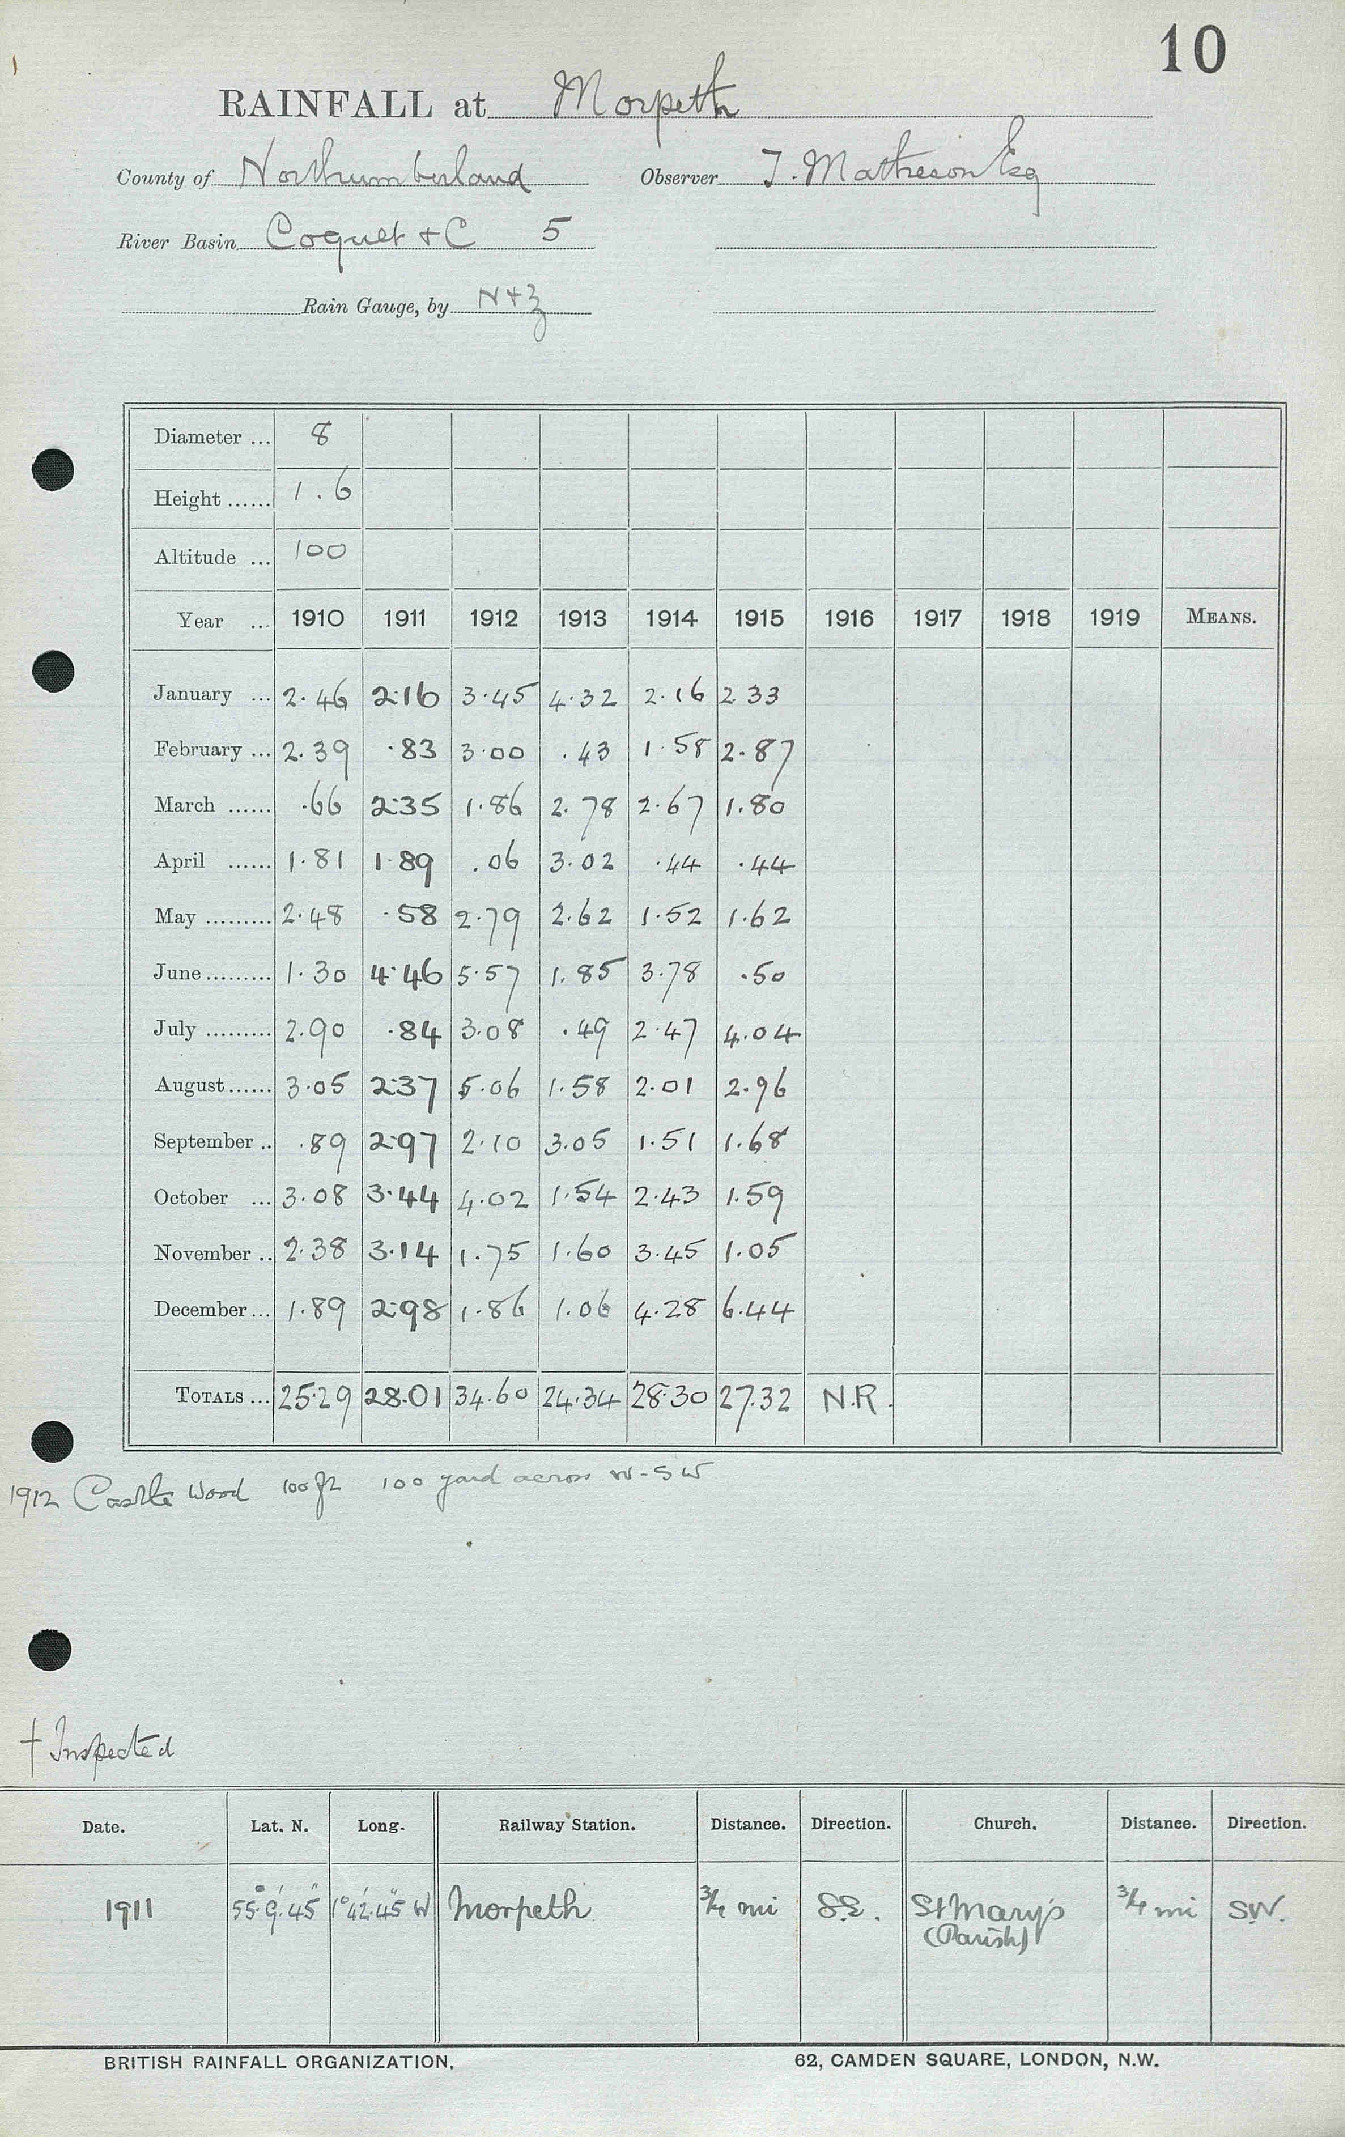 10
RAINFALL at Morpeth
County of Northumberland Observer T. Matheson Esq
River Basin Coquet + C 5
Rain Gauge, by N + Z
Diameter ... 8
Height ...... 1.6
Altitude ... 100
Year ... 1910 1911 1912 1913 1914 1915 1916 1917 1918 1919 MEANS.
January ... 2.46 2.16 3.45 4.32 2.16 2.33
February ... 2.39 .83 3.00 .43 1.58 2.87
March ...... .66 2.35 1.86 2.78 2.67 1.80
April ...... 1.81 1.89 .06 3.02 .44 .44
May ......... 2.48 .58 2.79 2.62 1.52 1.62
June ......... 1.30 4.46 5.57 1.85 3.78 .50
July ......... 2.90 .84 3.08 .49 2.47 4.04
August ...... 3.05 2.37 5.06 1.58 2.01 2.96
September .. .89 2.97 2.10 3.05 1.51 1.68
October ... 3.08 3.44 4.02 1.54 2.43 1.59
November .. 2.38 3.14 1.75 1.60 3.45 1.05
December ... 1.89 2.98 1.86 1.06 4.28 6.44
TOTALS ... 25.29 28.01 34.60 24.34 28.30 27.32 N.R.
1912 Castle Wood 100 ft 100 yard across W-SW
† Inspected
Date. Lat. N. Long. Railway Station. Distance. Direction. Church. Distance. Direction.
1911 55° 9' 45" 1° 42' 45" W Morpeth 3/4 mi S.E. St Mary's 3/4 mi S.W.
(Parish)
BRITISH RAINFALL ORGANIZATION, 62, CAMDEN SQUARE, LONDON, N.W.